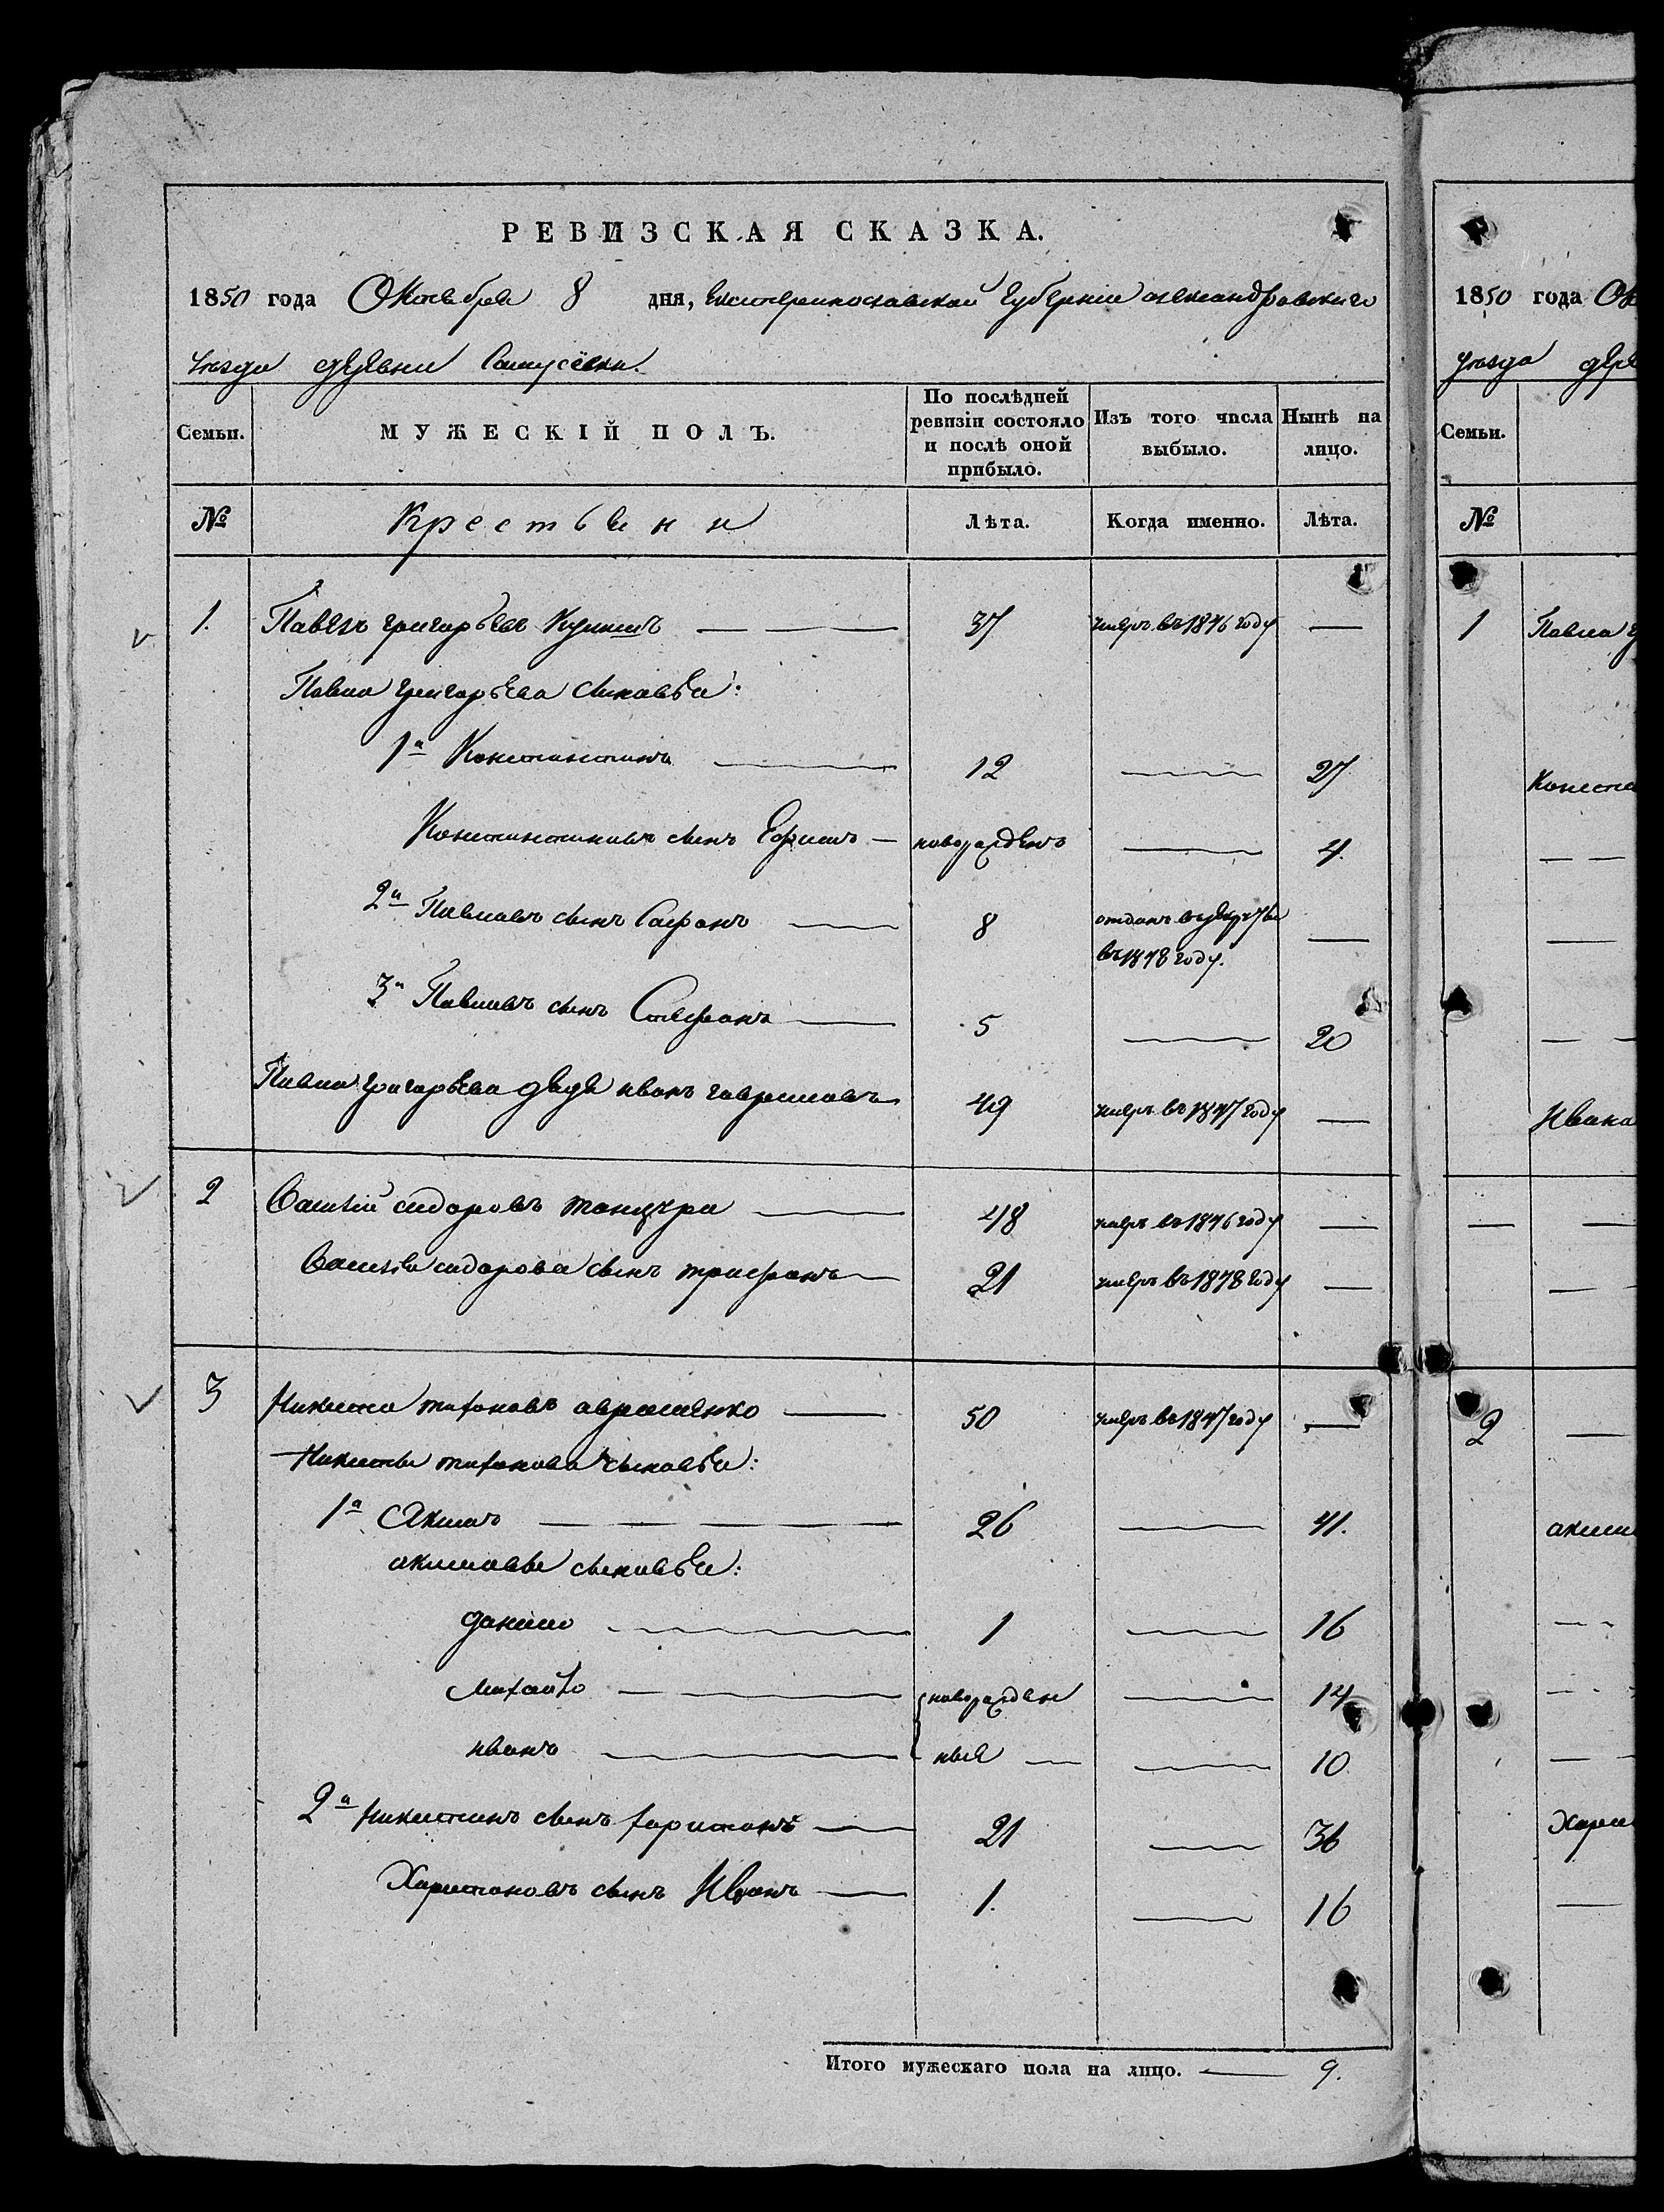 РЕВИЗСКАЯ СКАЗКА.
1850 года Октября 8 дня, Екатеринославской губерніи александровскаго
уѣзда деревни Самусёвки.
Семьи. МУЖЕСКІЙ ПОЛЪ. По послѣдней ревизіи состояло и послѣ оной прибыло. Изъ того числа выбыло. Нынѣ на лицо.
№ Крестьяни Лѣта. Когда именно. Лѣта.
1. Павелъ григорьевъ — — 37 умеръ въ 1846 году —
Павла григорьева сыновья:
1й Константинъ — 12 — 27
Константиновъ сынъ Ефимъ — новорожденъ — 4.
2й Павловъ сынъ Сафонъ — 8 отданъ в рекруты
въ 1848 году. —
3й Павловъ сынъ Стефанъ — 5 — 20
Павла григорьева дядя иванъ гавриловъ 49 умеръ въ 1847 году —
2 сидоровъ — 48 умеръ въ 1846 году —
сидорова сынъ трифонъ — 21 умеръ въ 1848 году —
3 Никита тихоновъ авраменко — 50 умеръ въ 1847 году —
Никиты тихонова сыновья:
1й Якимъ — — — 26 — 41.
акимовы сыновья:
данило — 1 — 16
михайло — новорожден — 14
иванъ — ные — — 10
2й Никитинъ сынъ харитонъ — 21 — 36
Харитоновъ сынъ Иванъ — 1. — 16
Итого мужескаго пола на лицо. — 9.
1850 года Ок
уѣзда дере
Семьи.
№
1 Павла г
Конста
— —
—
— —
Ивана
— —
—
2 —
аким
— -
— -
— -
Хари
—